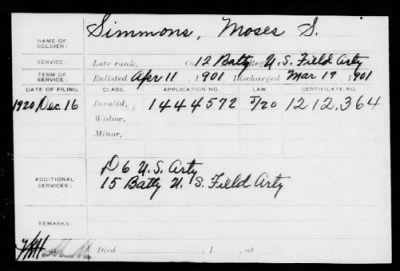 NAME OF SOLDIER: Simmons, Moses S.
SERVICE: Late rank, Co. 12 Batty Reg't U. S. Field Arty
TERM OF SERVICE: Enlisted Apr 11, 1901 Discharged Mar 19, 1901
DATE OF FILING. CLASS. APPLICATION NO. LAW. CERTIFICATE NO.
1920 Dec 16 Invalid, 1444572 5/20 1212,364
Widow,
Minor,
ADDITIONAL SERVICES: D 6 U.S. Arty
15 Batty U. S. Field Arty
REMARKS:
Died , 1 , at